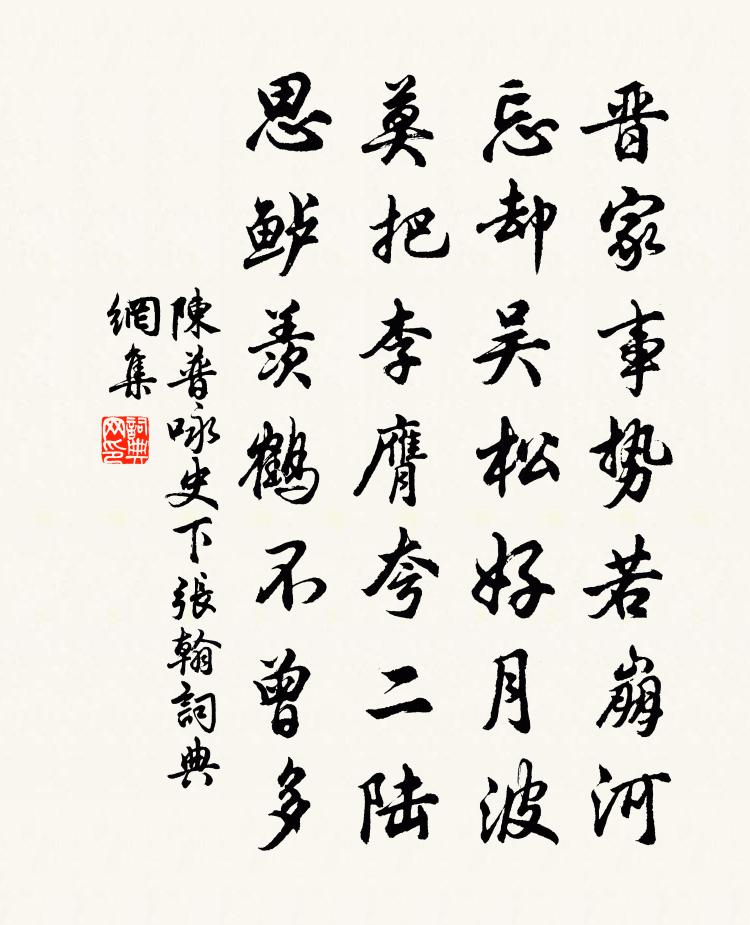 晋家事势若崩河
忘却吴松好月波
莫把李膺夸二陆
思鲈羡鹤不曾多
陳普咏史下張翰詞典
網集
詞典網印